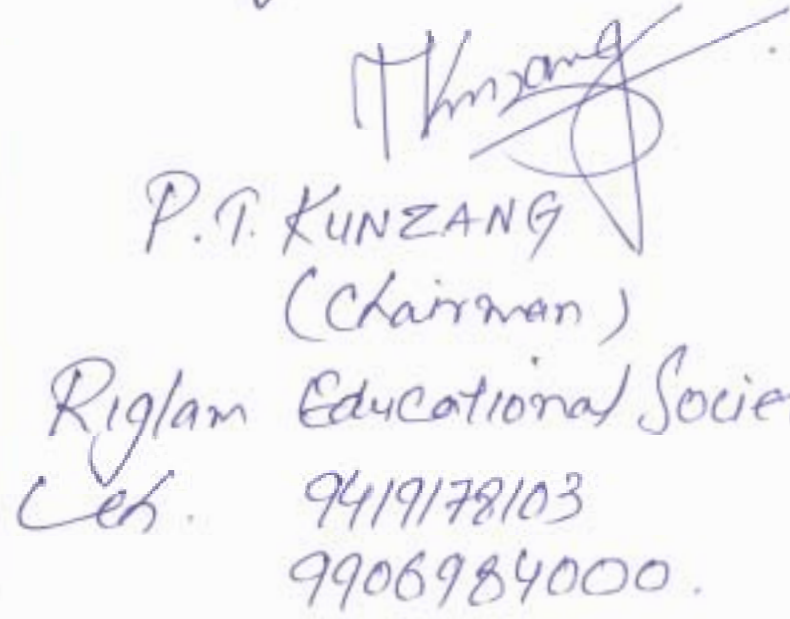 TKunzang
P.T. KUNZANG
(Chairman)
Riglam Educational Socie
Leh. 9419178103
9906984000.